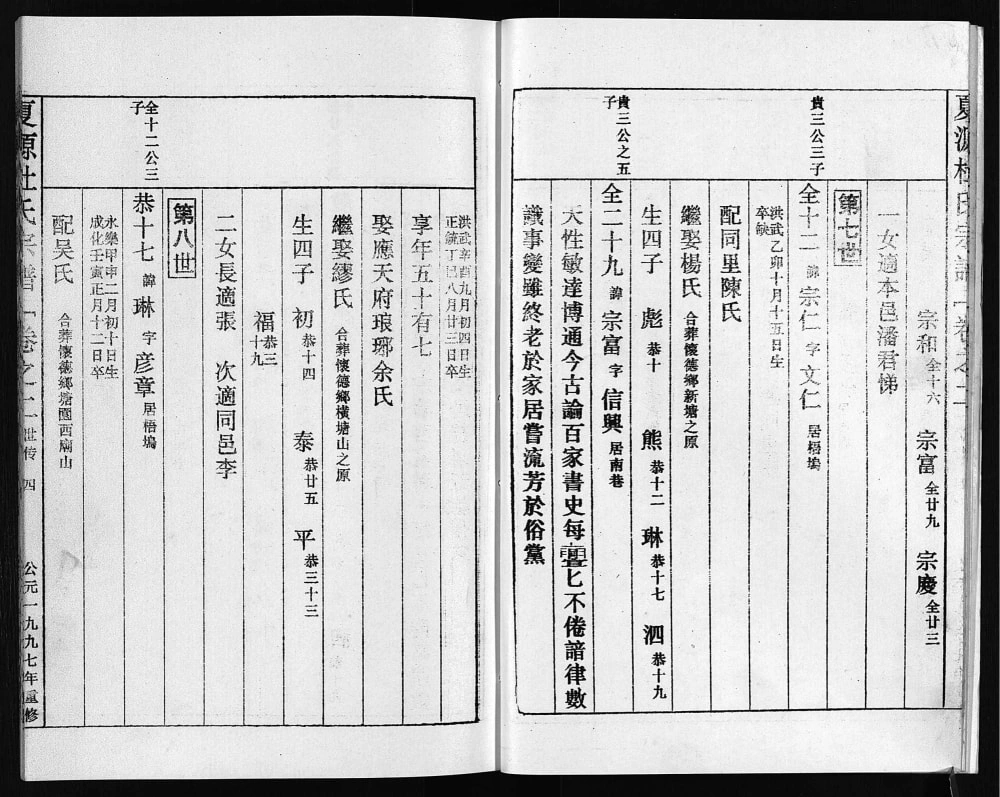 夏源杜氏宗譜 卷之二
宗和 全十六 宗富 全廿九 宗慶 全廿三
一女適本邑潘君悌
第七世
貴三公三子
全十二 諱 宗仁 字 文仁 居梧塢
洪武乙卯十月十五日生
卒缺
配同里陳氏
繼娶楊氏 合葬懷德鄉新塘之原
生四子 彪 恭十 熊 恭十二 琳 恭十七 泗 恭十九
貴三公之五
子
全二十九 諱 宗富 字 信興 居南巷
天性敏達博通今古諭百家書史每亹匕不倦諳律數
議事變雖終老於家居嘗流芳於俗黨
洪武辛酉九月初四日生
正統丁巳八月廿三日卒
享年五十有七
娶應天府琅琊余氏
繼娶繆氏 合葬懷德鄉橫塘山之原
生四子 初 恭十四 泰 恭廿五 平 恭三十三
福 恭三
十九
二女長適張 次適同邑李
第八世
全十二公三
子
恭十七 諱 琳 字 彦章 居梧塢
永樂甲申二月初十日生
成化壬寅正月十二日卒
配吴氏 合葬懷德鄉塘園西廟山
夏源杜氏宗譜 卷之二 世传 四 公元一九九七年重修